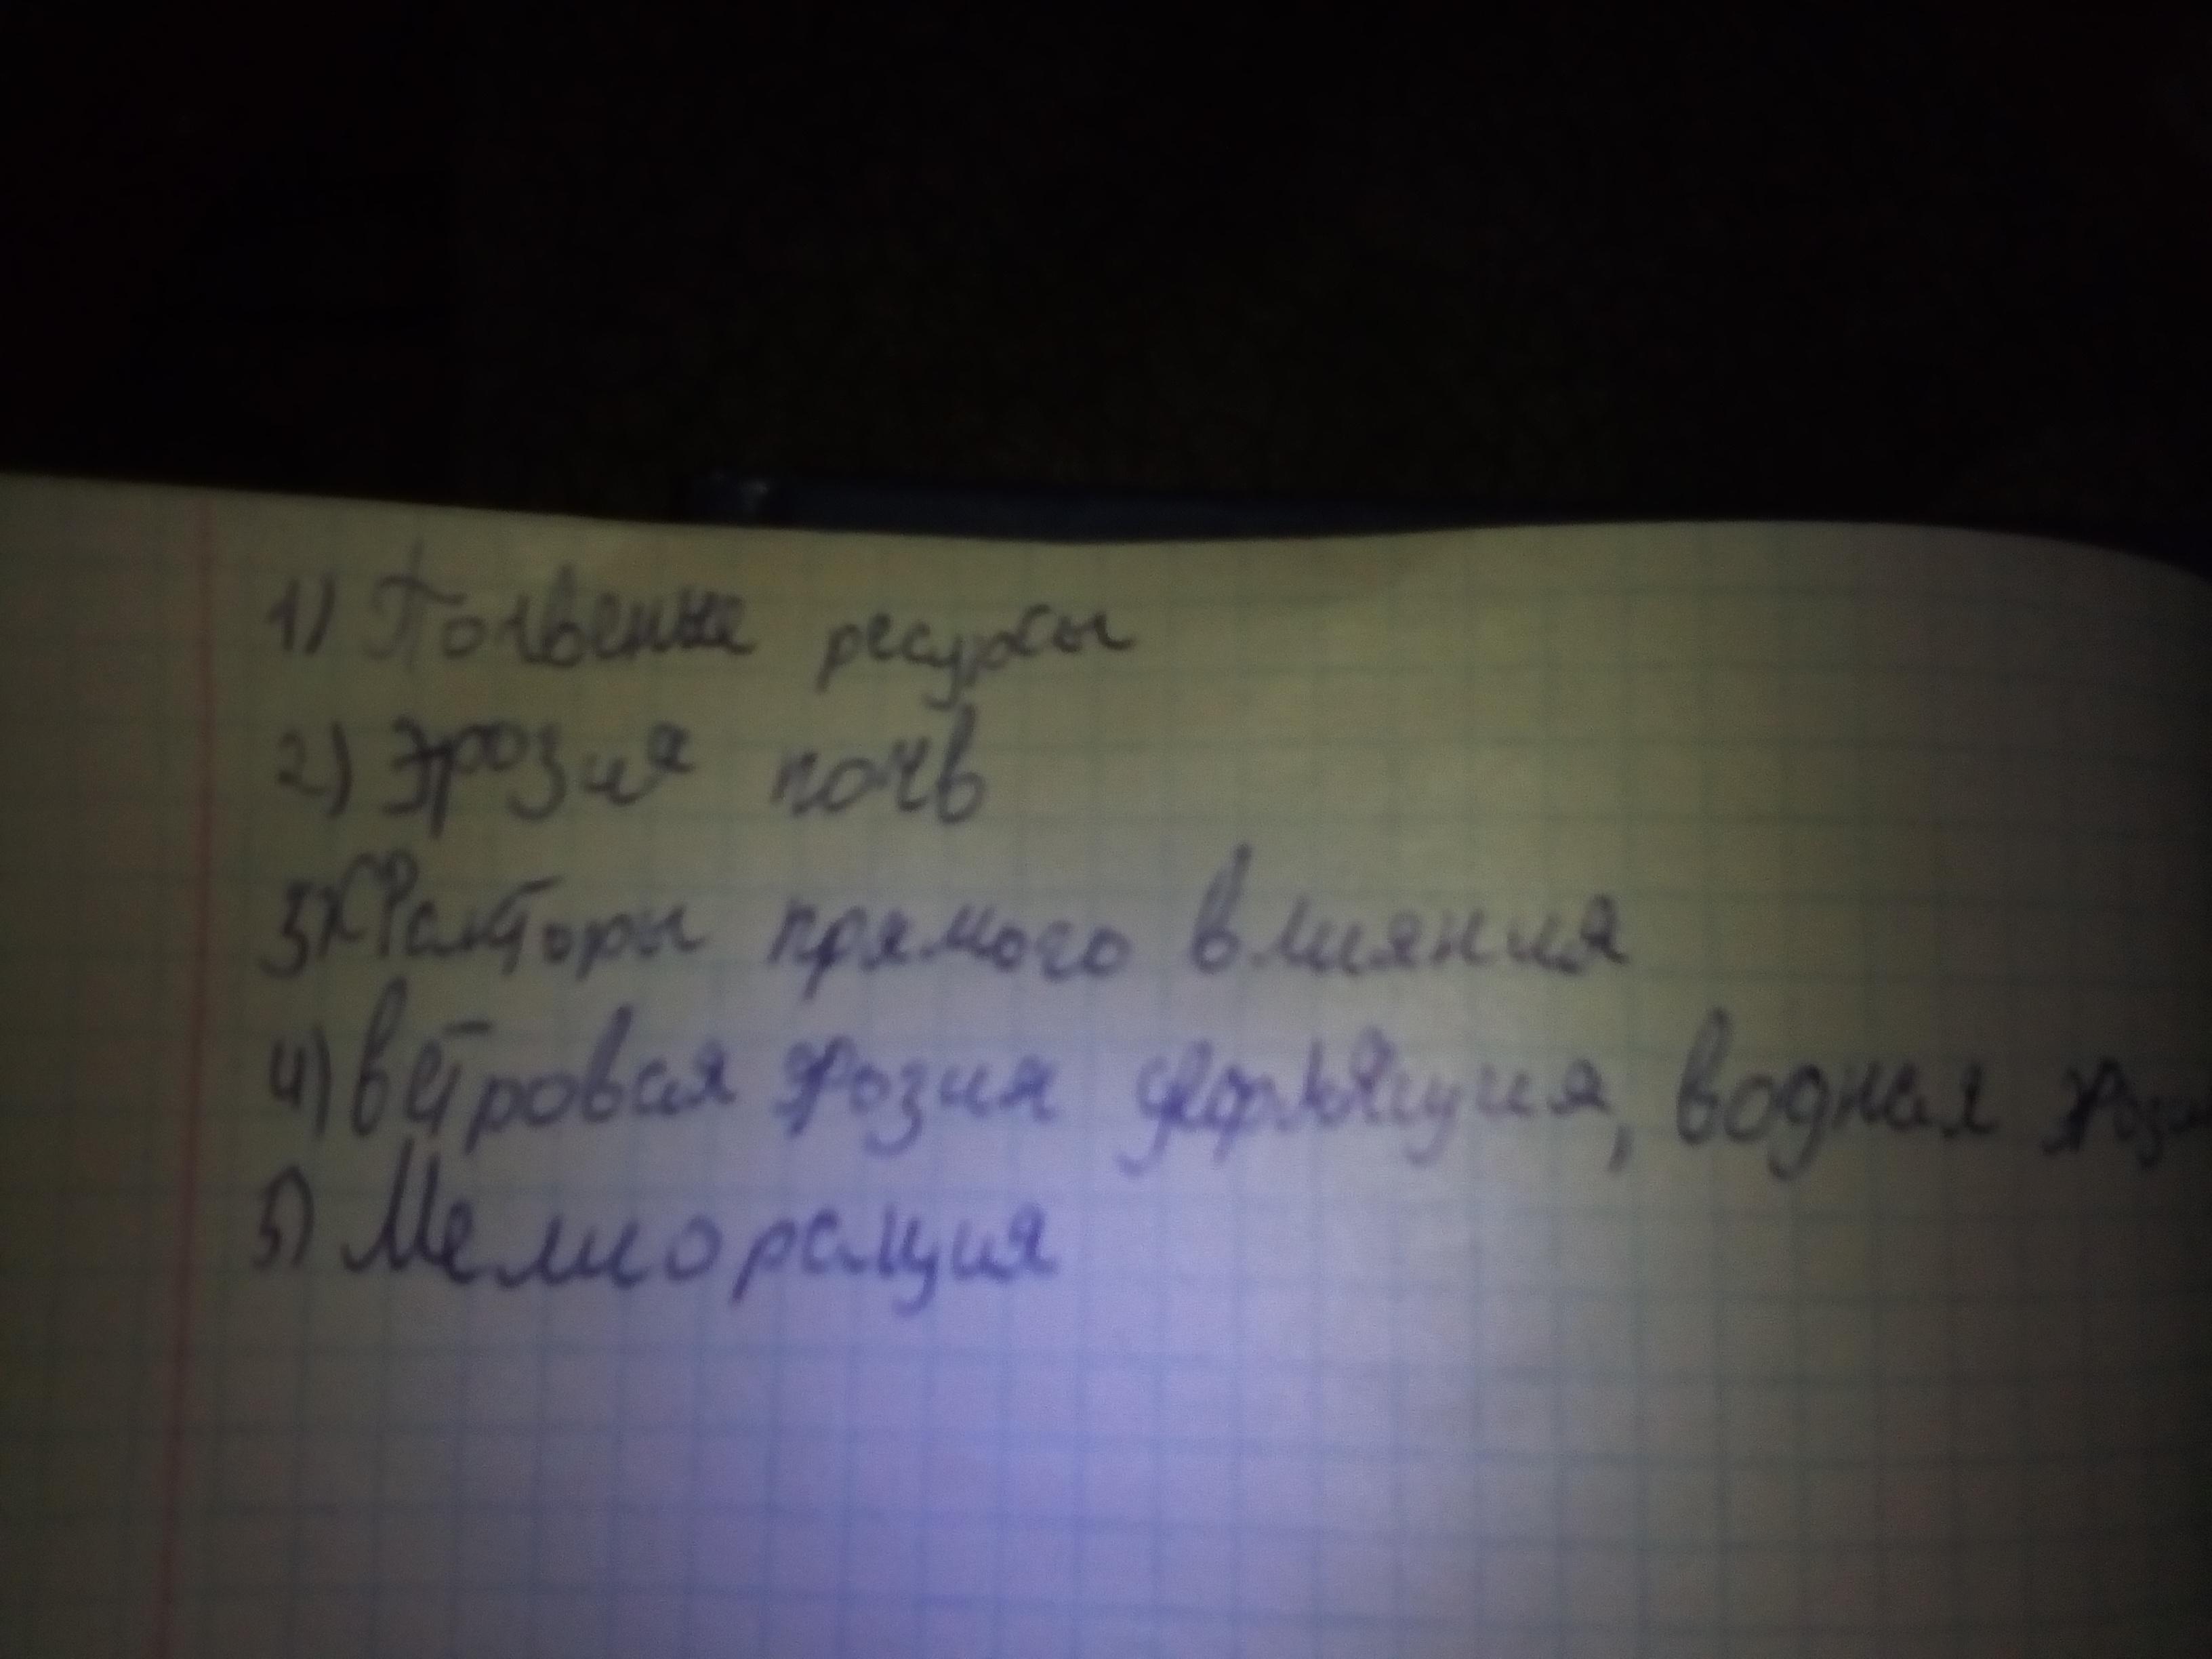 1) Почвенные ресурсы
2) Эрозия почв
3) Факторы прямого влияния
4) ветровая эрозия дефляция, водная эрози
5) Мелиорация